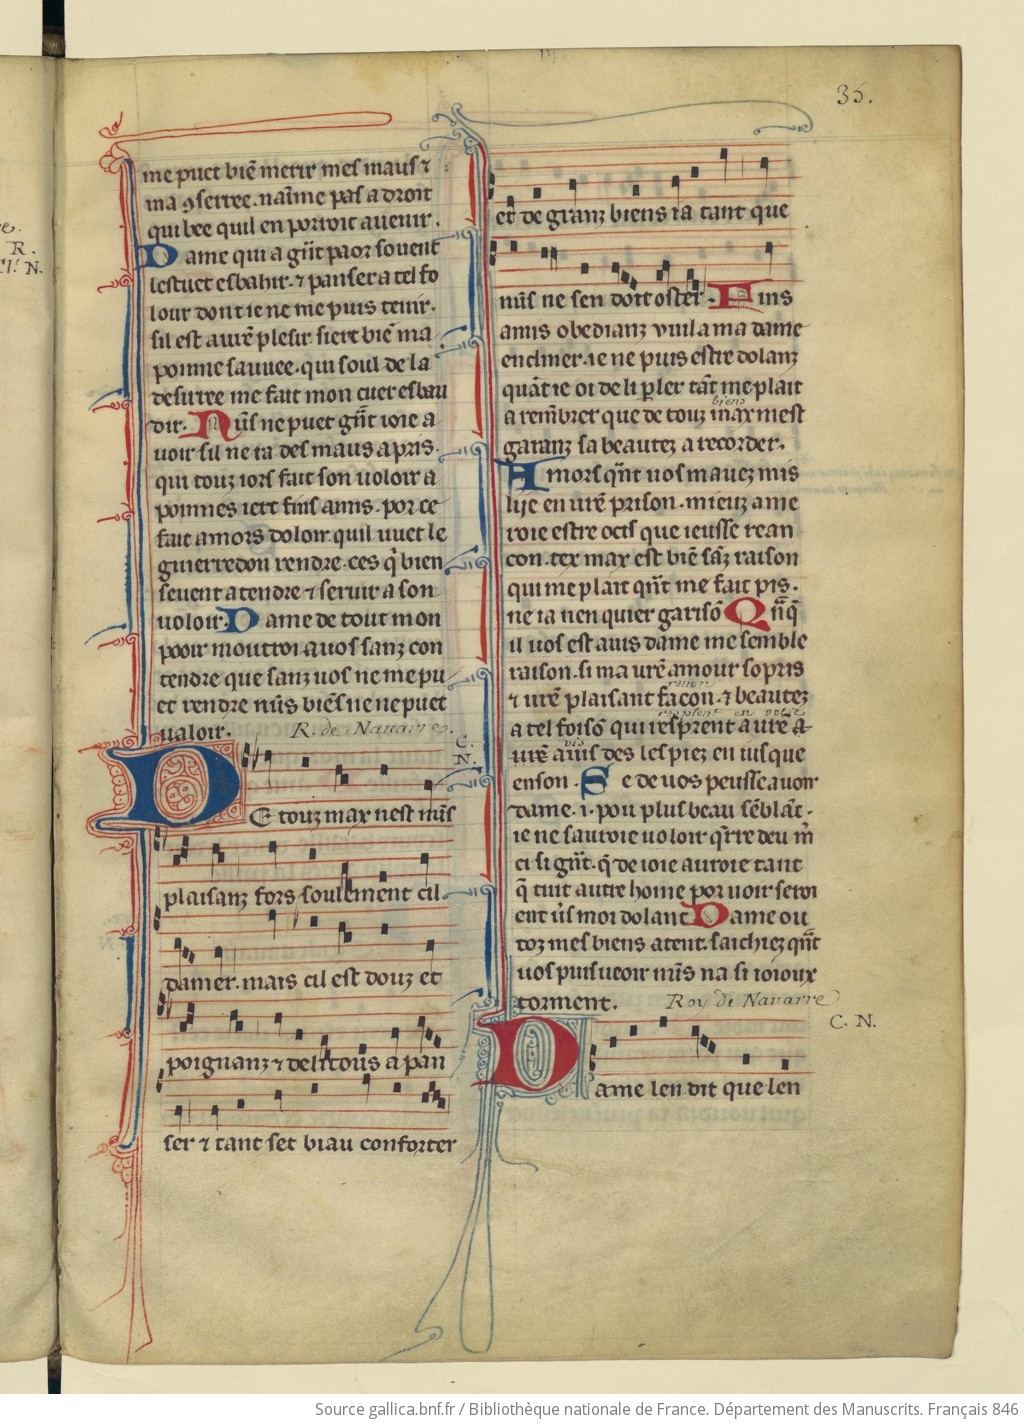 35.
me puet biē merir mes maus ⁊
ma ꝯserree. naīme pas a droit
qui bee quil en porroit auenir.
Dame qui a gn̄t paor souent
lestuet esbahir. ⁊ panser a tel fo
lour dont ie ne me puis tenir.
sil est a ur̄e plesir. siert biē ma
poinne sauuee. qui soul de la
desirree me fait mon cuer esbau
dir. Nūs ne puet gn̄t ioie a
uoir sil ne ra des maus apris.
qui touz iors fait son uoloir a
poinnes iert fins amis. por ce
fait amors doloir. quil uuet le
guierredon rendre. ces q̄ bien
seuent atendre ⁊ seruir a son
uoloir. Dame de tout mon
pooir moutroi a uos sanz con
tendre que sanz uos ne me pu
et rendre nūs biēs ne ne puet
ualoir. R. de Navarre.
C.
N.
De touz max nest nūs
plaisanz fors soulement cil
damer. mais cil est douz et
poignanz ⁊ delitous a pan
ser ⁊ tant set biau conforter
et de granz biens i a tant que
nūs ne sen doit oster. Fins
amis obedianz vuil a ma dame
encliner. ie ne puis estre dolanz
quāt ie oi de li ꝑler tāt me plait
biens
a rem̄brer que de touz max mest
garanz sa beautez a recorder.
Amors qn̄t uos mauez mis
lije en ur̄e prison. mieuz ame
roie estre ocis que ieusse rean
con. tex max est biē sāz raison
qui me plait qn̄t me fait pis.
ne ia nen quier garisō Qn̄q̄
il uos est auis dame me semble
raison. si ma ur̄e amour sopris
⁊ ur̄e plaisant facon. ⁊ beautez
a tel foisō qui resprent a ur̄e
vis
ur̄e auis des les piez en iusque
enson. Se de uos peusse auoir
dame. i. pou plus beau sēblāt.
ie ne sauroie uoloir q̄rre deu m̄
ci si gn̄t. q̄ de ioie auroie tant
q̄ tuit autre home por uoir seroi
ent u̾s moi dolant Dame ou
toz mes biens atent. saichiez qn̄t
uos puis ueoir nūs na si ioioux
torment. Roy de Navarre
C. N.
Dame len dit que len
R.
Cl. N.
Source gallica.bnf.fr / Bibliothèque nationale de France. Département des Manuscrits. Français 846